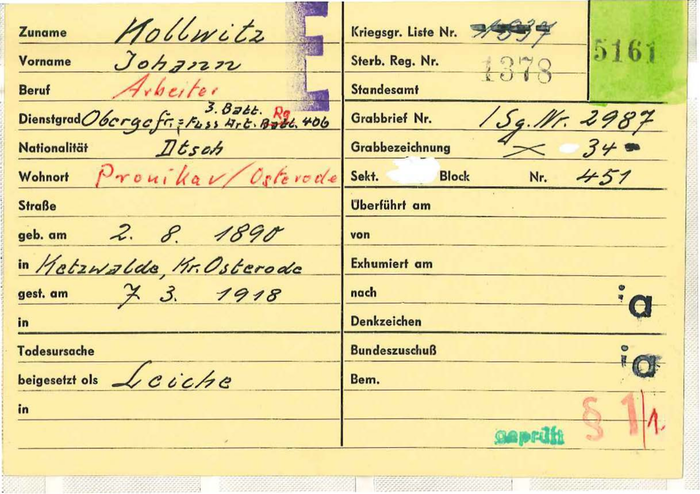 Zuname Kollwitz
Vorname Johann
Beruf Arbeiter
3. Batt. Rg
Dienstgrad Obergefr. = Fuss Art. Batt. 406
Nationalität Dtsch
Wohnort Pronikav/Osterode
Straße
geb. am 2. 8. 1890
in Ketzwalde, Kr. Osterode
gest. am 7 3. 1918
in
Todesursache
beigesetzt als Leiche
in
E
Kriegsgr. Liste Nr. 1337
5161
Sterb. Reg. Nr. 1378
Standesamt
Grabbrief Nr. / Sg. Nr. 2987
Grabbezeichnung X 34
Sekt. Block Nr. 451
Überführt am
von
Exhumiert am
nach
ia
Denkzeichen
Bundeszuschuß
ia
Bem.
geprüft § 1/1.